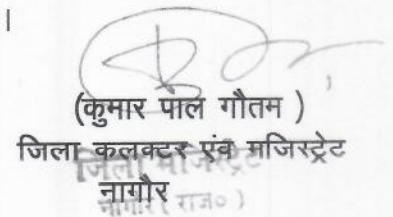 (कुमार पाल गौतम )
जिला कलक्टर एंव मजिस्ट्रेट
जिला मजिस्ट्रेट
नागौर
नागौर ( राज० )